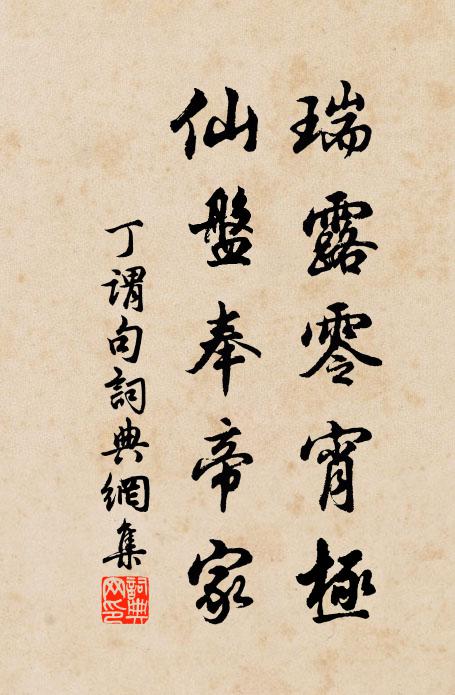 瑞露零宵極
仙盤奉帝家
丁謂句詞典網集
詞典
网印